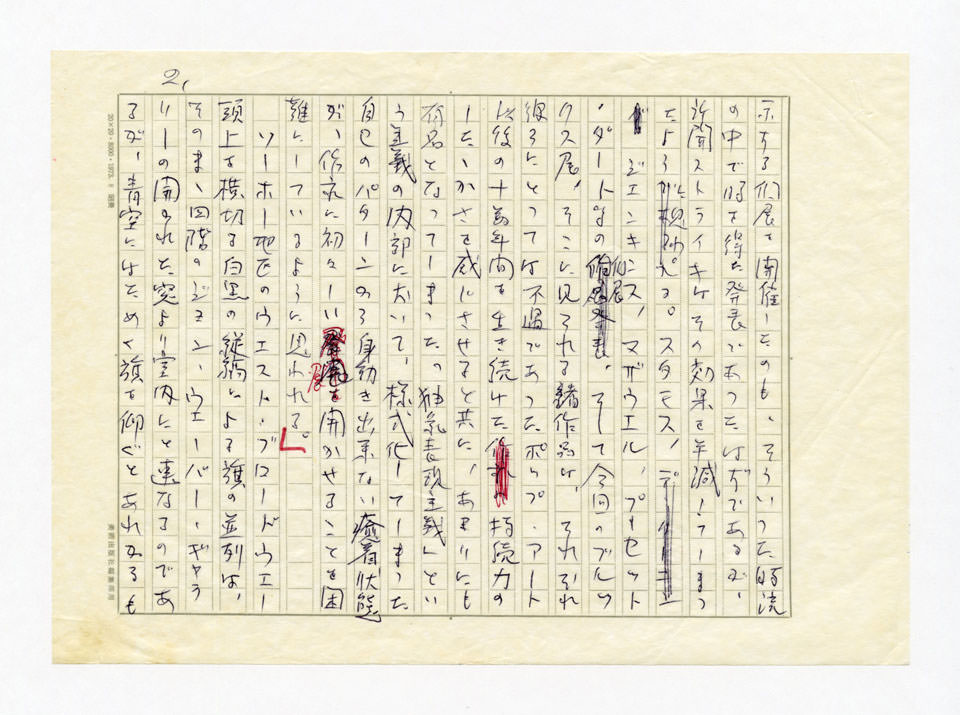 2,
示する個展を開催したのも、そういった時流
の中で時を得た発表であった。はずであるが、
新聞ストライキはその効果を半減してしまっ
たように思われる。スタモス、
ジェンキンス、マザウエル、プーセット
・ダートの個展、そして今回のブルッ
クス展、そこに見られる諸作品は、それぞれ
彼らにとっては不遇であったポップ・アート
以後の十数年間を生き続けた持続力の
したたかさを感じさせると共に、あまりにも
有名となってしまった「抽象表現主義」とい
う主義の内部において、様式化してしまった
自己のパターンの身動き出来ない癒着状態
が、作家に初々しい展開を開かせることを困
難にしているように思われる。
ソーホー地区のウエスト・ブロードウエー
頭上を横切る白黒の縦縞による旗の並列は、
そのまゝ四階のジョン・ウエーバー・ギャラ
リーの開かれた窓より室内にと連なるのであ
るが、青空にはためく旗を仰ぐとあれかるも
20×20・8000・1973.
美術出版社編集用箋